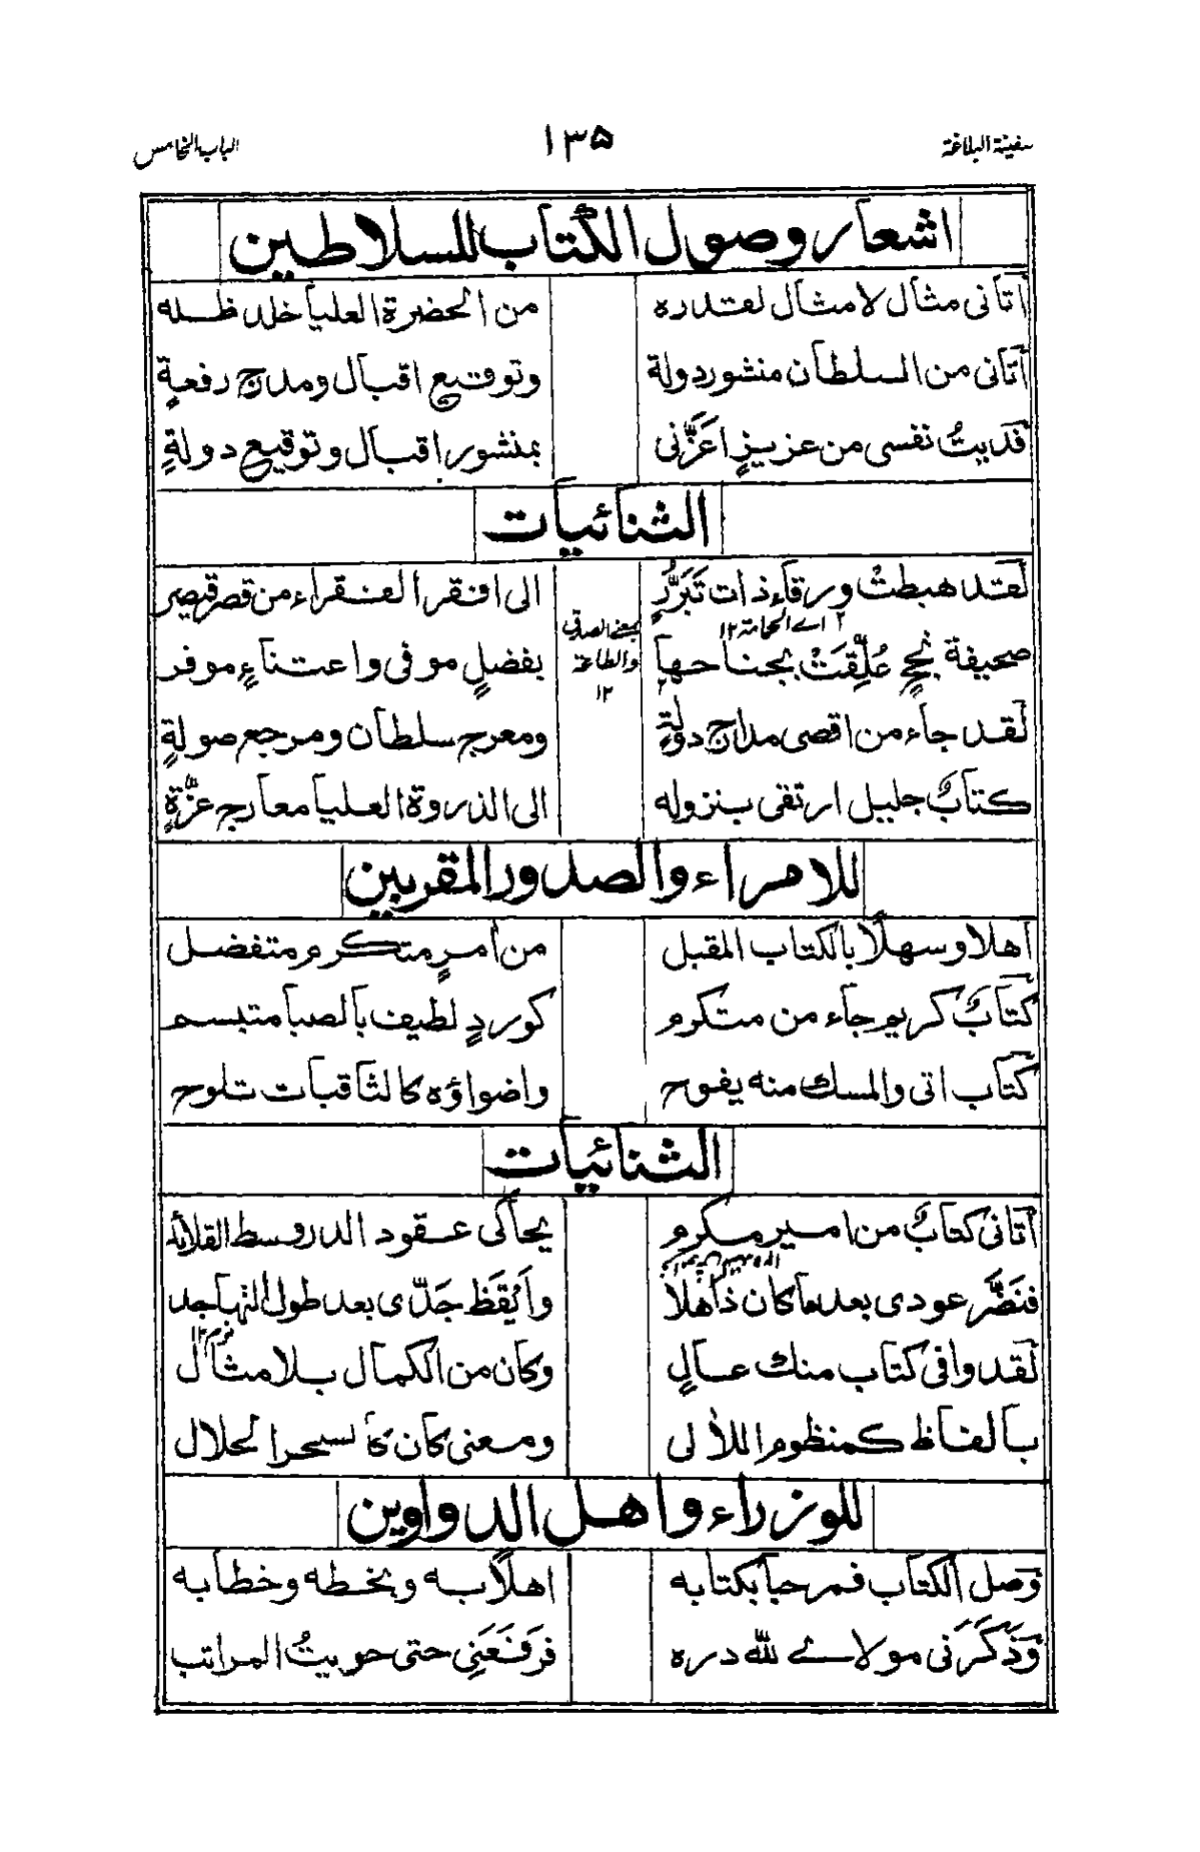 سفينة البلاغة ۱۳۵ الباب الخامس
اشعار وصول الكتاب للسلاطين
اتانى مثال لا مثال لقدره من الحضرة العليا خلد ظله
اتانى من السلطان منشور دولة وتوقيع اقبال ومدرج رفعةٍ
فديتُ نفسى من عزيزٍ اعزّنى بمنشور اقبال وتوقيع دولةٍ
الثنائيات
لقد هبطتْ ورقاء ذات تَبَرُّرٍ الى افقر الفقراء من قصر قيصر
۲ اے الحمامة ۱۲
بمعنى الصدق والطاعة ۱۲
صحيفة نجحٍ عُلِّقَتْ بجناحها بفضلٍ موفى واعتناءٍ موفر
لقد جاء من اقصى مدارج دولةٍ ومعرج سلطان ومرجع صولةٍ
كتابٌ جليل ارتقى بنزوله الى الذروة العليا معارج عزّةٍ
للامراء والصدور المقربين
اهلا وسهلًا بالكتاب المقبل من امرٍ متكرم متفضل
كتابٌ كريم جاء من متكرم كوردٍ لطيف بالصبا متبسم
كتاب اتى والمسك منه يفوح واضواؤه كالثاقبات تلوح
الثنائيات
اتانى كتابٌ من امير مكرم يحاكى عقود الدر وسط القلائد
فنَضَّر عودى بعد ما كان ذاهلا وايْقَظ جَدّى بعد طول التهاجد
لقد وافى كتاب منك عالٍ وكان من الكمال بلا مثال
بالفاظ كمنظوم اللألى ومعنى كان كالسحر الحلال
للوزراء واهل الدواوين
وصل الكتاب فمرحبا بكتابه اهلًا به وبخطه وخطابه
وَذكَرَنى مولاے لله دره فرَفَعَنِى حتى حويتُ المراتب